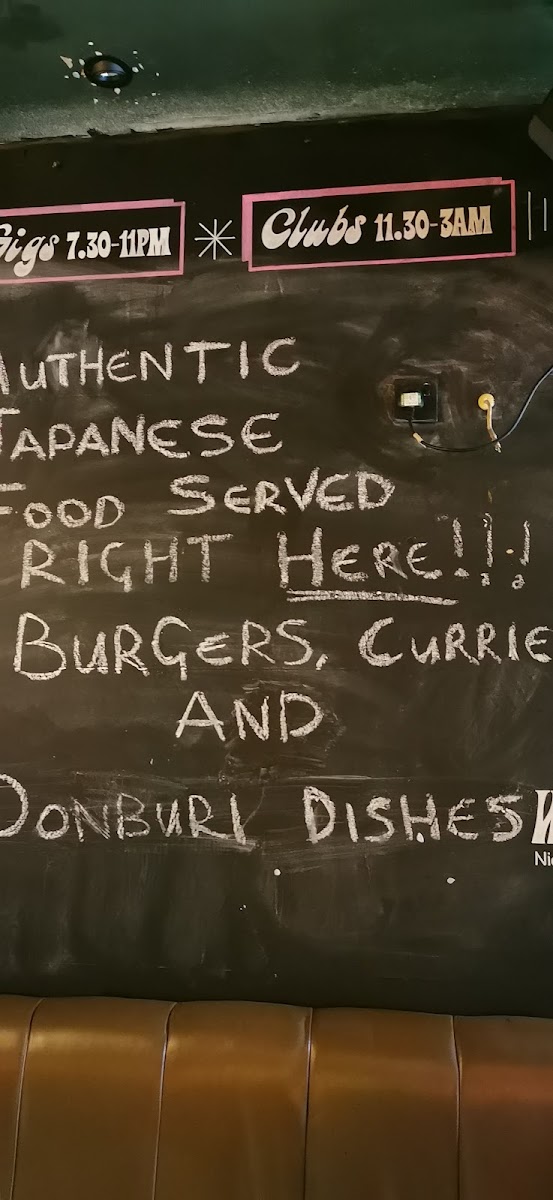 Gigs 7.30-11PM * Clubs 11.30-3AM
AUTHENTIC
JAPANESE
FOOD SERVED
RIGHT HERE!!!
BURGERS, CURRIE
AND
DONBURI DISHES